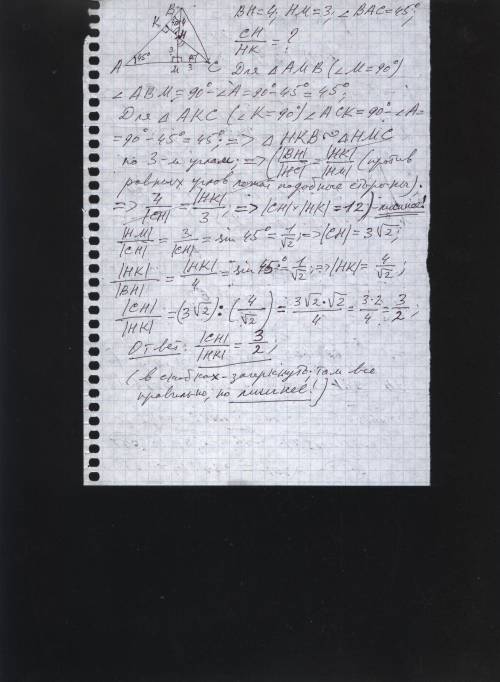 BH=4, HM=3, ∠BAC=45°,
CH/HK = ?
B
K
H
A 45° M C
3
Для △AMB (∠M=90°)
∠ABM=90°-∠A=90°-45°=45°;
Для △AKC (∠K=90°) ∠ACK=90°-∠A=
=90°-45°=45°; => △HKB ∾ △HMC
по 3-м углам. => (|BH|/|HC| = |HK|/|HM| (против
равных углов лежат подобные стороны).
=> 4/|CH| = |HK|/3, => |CH|·|HK|=12) - лишнее!
|HM|/|CH| = 3/|CH| = sin 45° = 1/√2; => |CH| = 3√2;
|HK|/|BH| = |HK|/4 = sin 45° = 1/√2; => |HK| = 4/√2;
|CH|/|HK| = (3√2) : (4/√2) = 3√2·√2/4 = 3·2/4 = 3/2;
Ответ: |CH|/|HK| = 3/2;
(в скобках - зачеркнуть; там все
правильно, но лишнее!)